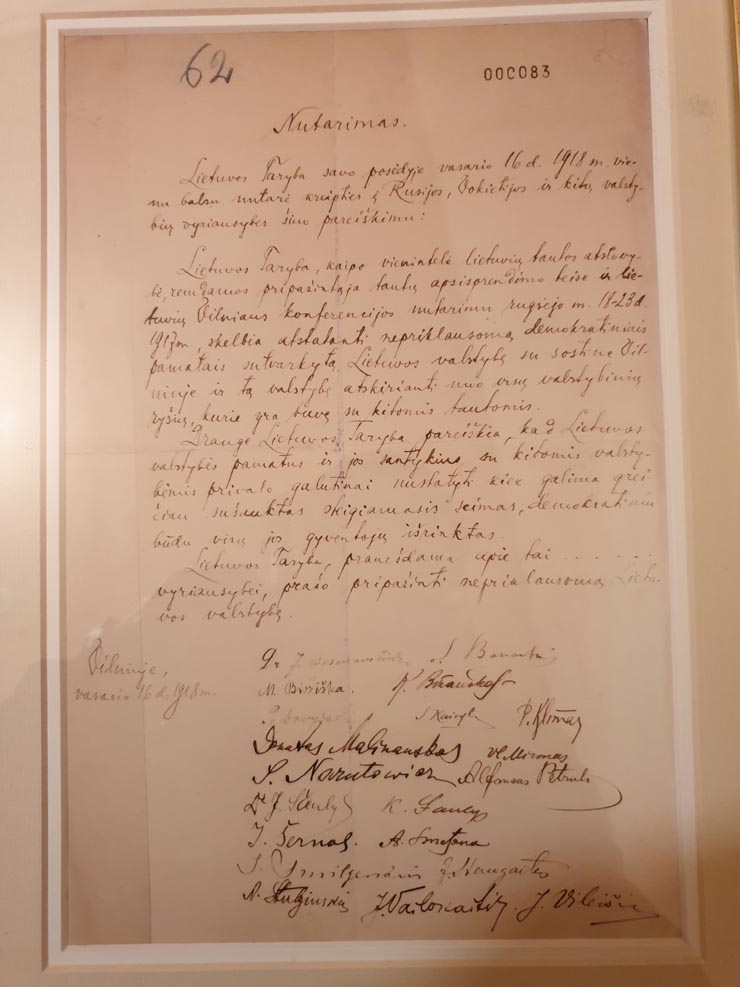 62
000083
Nutarimas.
Lietuvos Taryba savo posėdyje vasario 16 d. 1918 m. vie-
nu balsu nutarė kreipties į Rusijos, Vokietijos ir kitų valsty-
bių vyriausybes šiuo pareiškimu:
Lietuvos Taryba, kaipo vienintelė lietuvių tautos atstovy-
bė, remdamos pripažintąja tautų apsisprendimo teise ir lie-
tuvių Vilniaus konferencijos nutarimu rugsėjo m. 18-23 d.
1917 m., skelbia atstatanti nepriklausomą demokratiniais
pamatais sutvarkytą Lietuvos valstybę su sostine Vil-
niuje ir tą valstybę atskirianti nuo visų valstybinių
ryšių, kurie yra buvę su kitomis tautomis.
Drauge Lietuvos Taryba pareiškia, kad Lietuvos
valstybės pamatus ir jos santykius su kitomis valsty-
bėmis privalo galutinai nustatyti kiek galima grei-
čiau sušauktas steigiamasis seimas, demokratiniu
būdu visų jos gyventojų išrinktas.
Lietuvos Taryba, pranešdama apie tai . . . . . .
vyriausybei, prašo pripažinti nepriklausomą Lietu-
vos valstybę.
Vilniuje,
vasario 16 d. 1918 m.
Dr J. S. Banaitis
M. Biržiška. K. Bizauskas
S. Kairys P. Klimas
Donatas Malinauskas Vl. Mironas
S. Narutowicz Alfonsas Petrulis
Dr J. Šaulys K. Šaulys
J. Šernas. A. Smetona
J. Smilgevičius J. Staugaitis
A. Stulginskis J. Vailokaitis. J. Vileišis